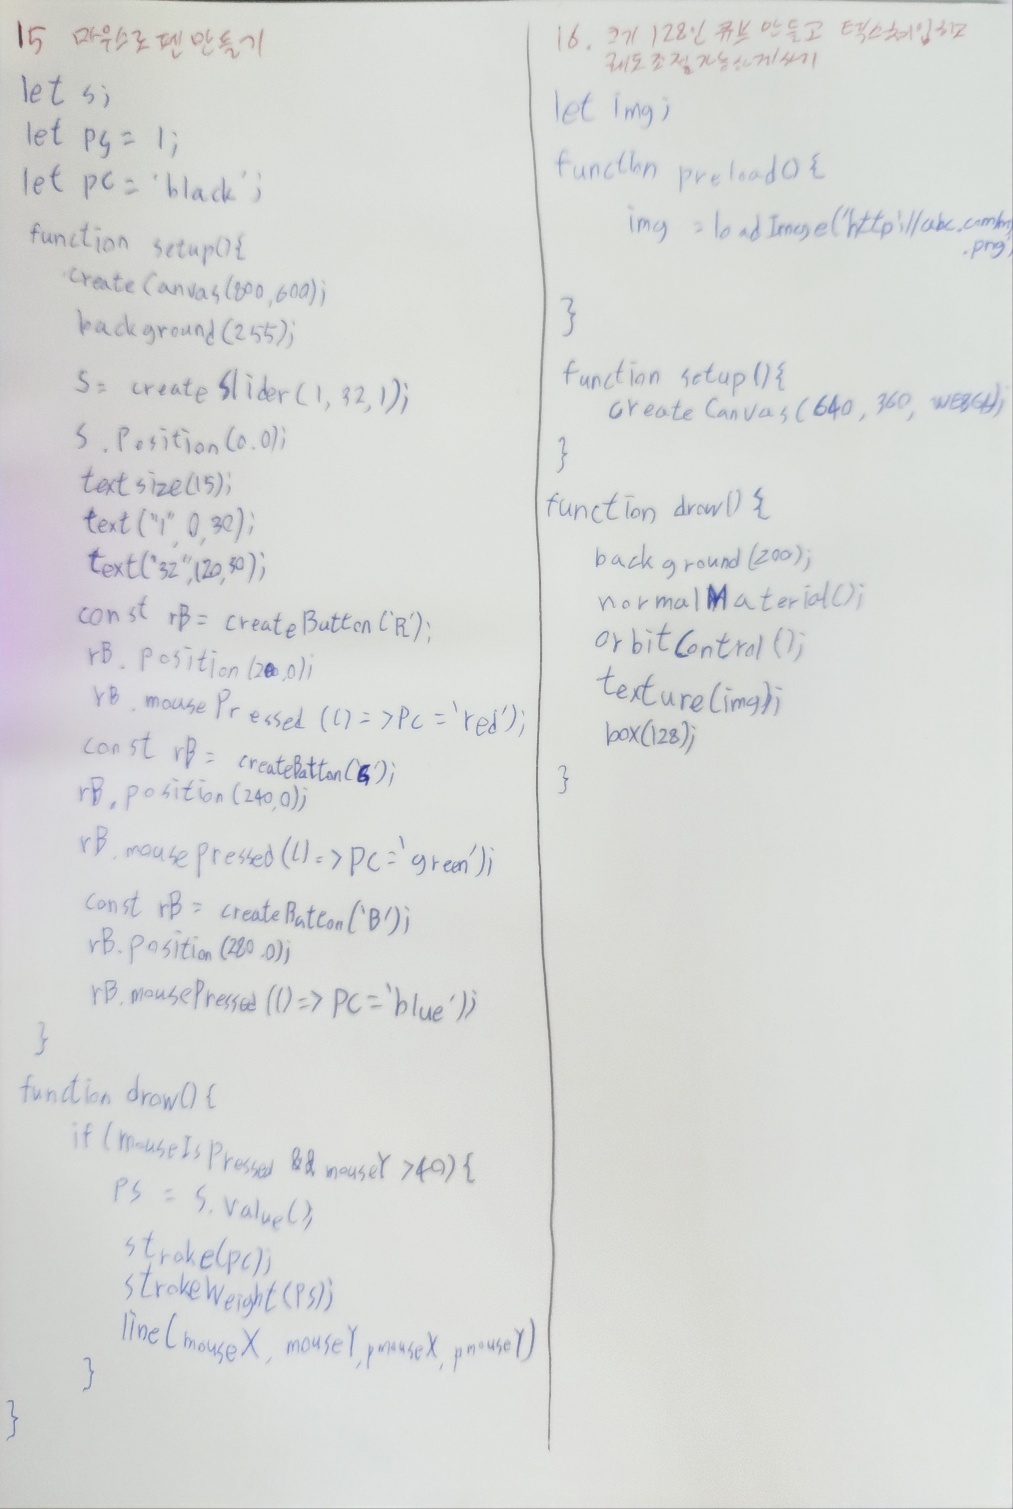 15 마우스로 펜 만들기
let s;
let ps = 1;
let pc = 'black';
function setup(){
createCanvas(800,600);
background(255);
s= createSlider(1,32,1);
s.position(0.0);
textsize(15);
text("1",0,30);
text("32",120,30);
const rB= createButton('R');
rB.position(200,0);
rB.mousePressed(()=>Pc='red');
const rB= createButton('G');
rB.position(240,0);
rB.mousepressed(()=>PC='green');
const rB= createButton('B');
rB.position(280.0);
rB.mousePressed(()=>PC='blue');
}
function draw(){
if(mouseIsPressed && mouseY >40){
PS = S.value();
stroke(pc);
strokeWeight(Ps);
line(mouseX, mouseY,pmouseX, pmouseY)
}
}
16. 크기 128인 큐브 만들고 텍스쳐입히고
궤도조절가능하게하기
let img;
function preload(){
img =loadImage('http://abc.com/
.png'
}
function setup(){
createCanvas(640,360, WEBGL);
}
function draw(){
background(200);
normalMaterial();
orbitControl();
texture(img);
box(128);
}